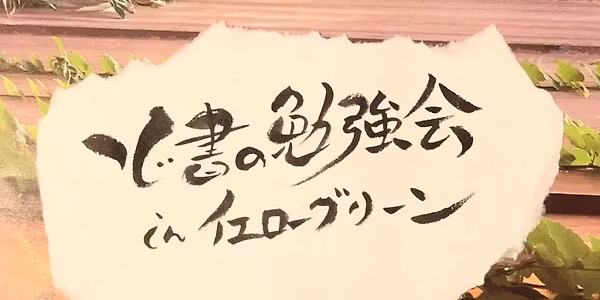 書の勉強会
in イエローグリーン